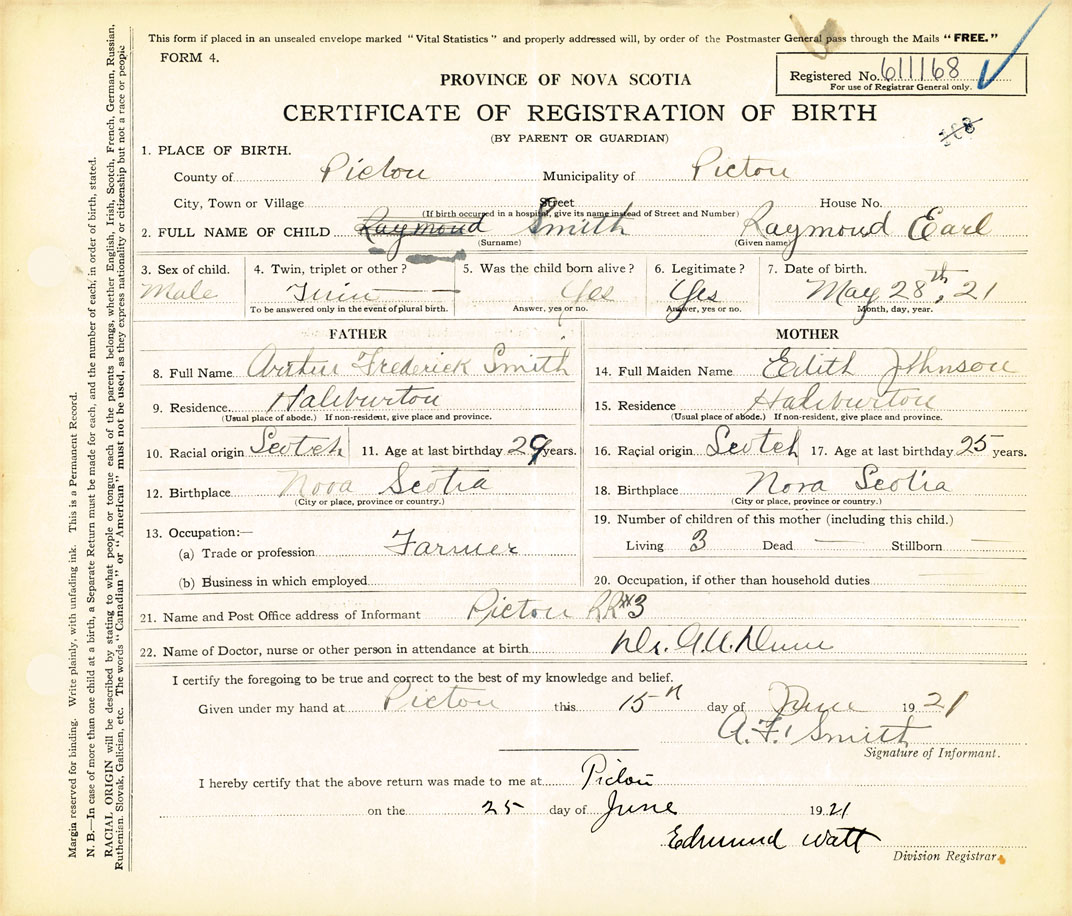 This form if placed in an unsealed envelope marked "Vital Statistics" and properly addressed will, by order of the Postmaster General pass through the Mails "FREE."
FORM 4.
Registered No. 611168
For use of Registrar General only.
PROVINCE OF NOVA SCOTIA
CERTIFICATE OF REGISTRATION OF BIRTH
(BY PARENT OR GUARDIAN)
1. PLACE OF BIRTH.
County of Pictou Municipality of Pictou
City, Town or Village Street House No.
(If birth occurred in a hospital, give its name instead of Street and Number)
2. FULL NAME OF CHILD Raymond Smith Raymond Earl
(Surname) (Given name)
3. Sex of child. 4. Twin, triplet or other? 5. Was the child born alive? 6. Legitimate? 7. Date of birth.
Male Twin Yes Yes May 28th, 21
To be answered only in the event of plural birth. Answer, yes or no. Answer, yes or no. Month, day, year.
FATHER
8. Full Name Arthur Frederick Smith
9. Residence Haliburton
(Usual place of abode.) If non-resident, give place and province.
10. Racial origin Scotch 11. Age at last birthday 29 years.
12. Birthplace Nova Scotia
(City or place, province or country.)
13. Occupation:—
(a) Trade or profession Farmer
(b) Business in which employed
MOTHER
14. Full Maiden Name Edith Johnson
15. Residence Haliburton
(Usual place of abode.) If non-resident, give place and province.
16. Racial origin Scotch 17. Age at last birthday 25 years.
18. Birthplace Nova Scotia
(City or place, province or country.)
19. Number of children of this mother (including this child.)
Living 3 Dead — Stillborn —
20. Occupation, if other than household duties
21. Name and Post Office address of Informant Pictou RR#3
22. Name of Doctor, nurse or other person in attendance at birth Dr. Dunn
I certify the foregoing to be true and correct to the best of my knowledge and belief.
Given under my hand at Pictou this 15th day of June 1921
A. F. Smith
Signature of Informant.
I hereby certify that the above return was made to me at Pictou
on the 25 day of June 1921
Edmund Watt
Division Registrar.
Margin reserved for binding. Write plainly, with unfading ink. This is a Permanent Record.
N. B.—In case of more than one child at a birth, a Separate Return must be made for each, and the number of each, in order of birth, stated.
RACIAL ORIGIN will be described by stating to what people or tongue each of the parents belongs, whether English, Irish, Scotch, French, German, Russian,
Ruthenian, Slovak, Galician, etc. The words "Canadian" or "American" must not be used, as they express nationality or citizenship but not a race or people